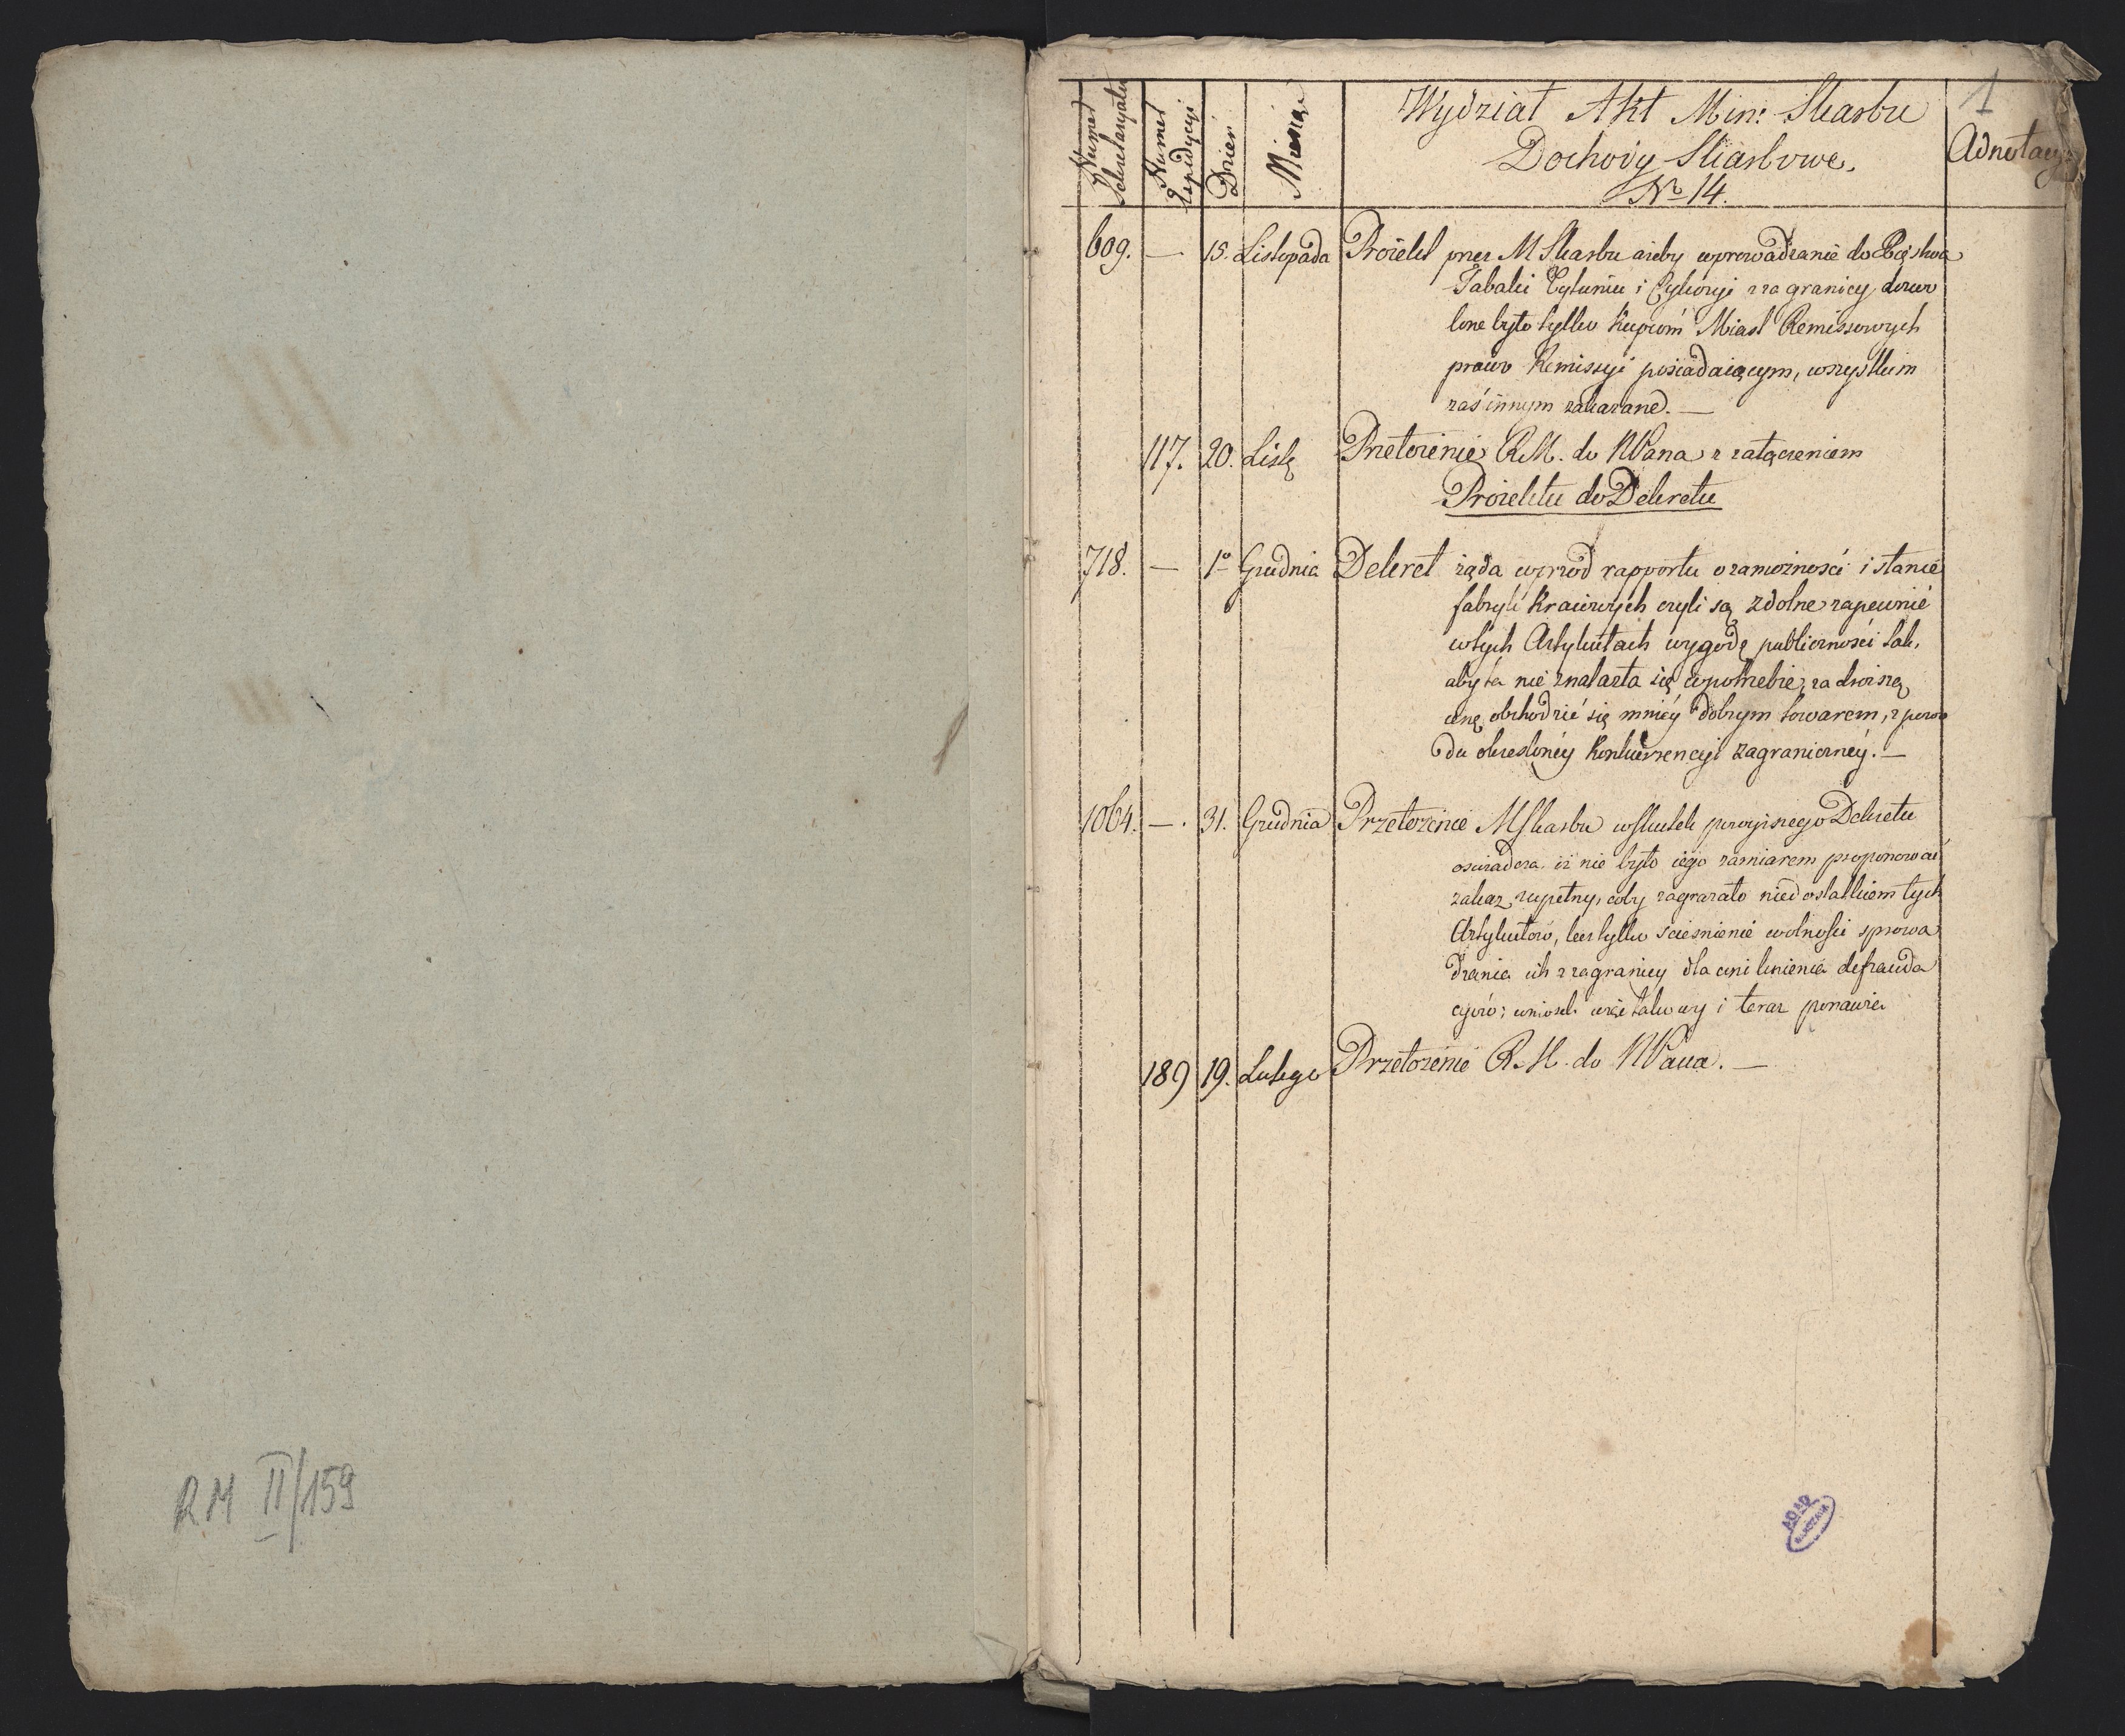 RM II/159
1
Numer Sekretaryatu
Numer Expedycyi
Dzień
Miesiąc
Wydział Akt Min: Skarbu
Dochody Skarbowe.
No 14.
Adnotacye
609. — 15. Listopada Proiekt przez M Skarbu ażeby wprowadzanie do Xięstwa
Tabaki Tytuniu i Cykoryi z zagranicy dozwo
lone było tylko kupcom Miast Remissowych
prawo Remissyi posiadaiącym, wszystkim
zaś innym zakazane. —
117. 20. Listo Przełożenie R.M. do NPana z załączeniem
Proiektu do Dekretu
718. — 1o Grudnia Dekret żąda wprzód rapportu o zamożności i stanie
fabryk kraiowych czyli są zdolne zapewnić
w tych Artykułach wygodę publiczności tak,
aby ta nie znalazła się w potrzebie, za droższą
cenę obchodzić się mniéy dobrym towarem, z powo
du określonéy konkurrencyi zagranicznéy. —
1064. — . 31. Grudnia Przełożenie M Skarbu w skutek powyższego Dekretu
oświadcza iż nie było iego zamiarem proponować
zakaz zupełny, coby zagrażało niedostatkiem tych
Artykułów, lecz tylko ścieśnienie wolności sprowa
dzania ich z zagranicy dla defrauda
cyów; wniosek takowy i teraz ponawia
189 19. Lutego Przełożenie R.M. do NPana. —
AGAD
WARSZAWA